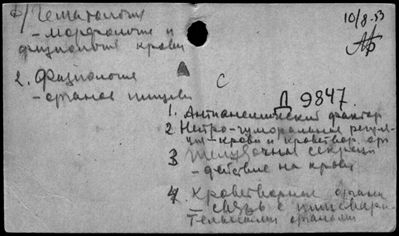 1) Гематология
- морфология и
физиология крови
10/8-53
2. Физиология
- органов пищев.
С
Д 9847
1. Антианемический фактор
2 Нейро-гуморальная регул-
ция крови и кроветвор. орг
3 Желудочная секреция
- действие на кровь
4 Кроветворные органы
- связь с пищевари-
тельными органами